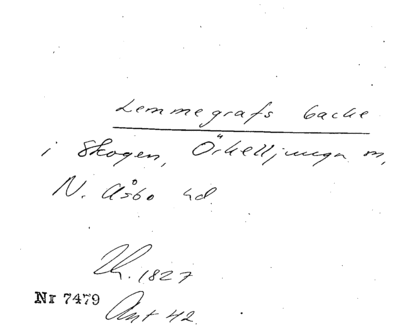 Lemmegrafs backe
i Skogen, Örkelljunga m,
N. Åsbo hd
Th. 1827
Nr 7479
Ant 42